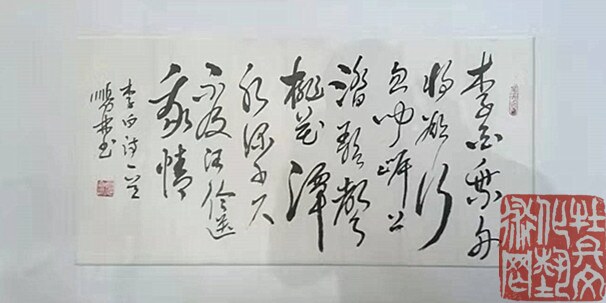 李白乘舟
将欲行
忽闻岸上
踏歌聲
桃花潭
水深千尺
不及汪伦送
我情
李白诗一首